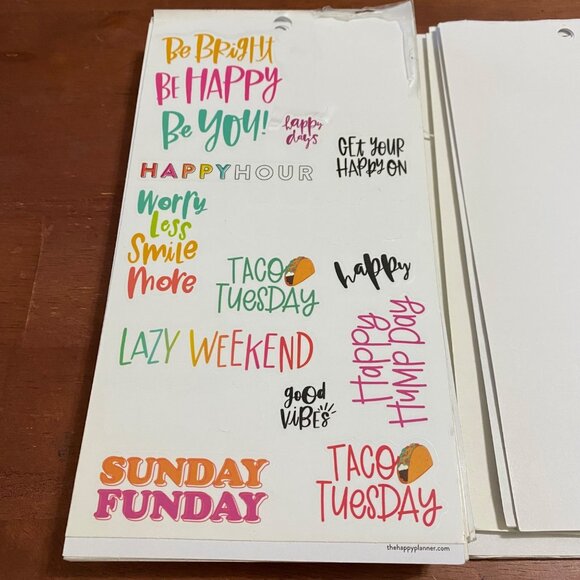 Be BRigHt
Be HAPPY
Be YOU!
happy
days
GET YOUR
HAPPY ON
HAPPYHOUR
Worry
Less
Smile
More
TACO
TUESDAY
happy
Happy
HUMP DAY
LAZY WEEKEND
good
ViBES
SUNDAY
FUNDAY
TACO
TUESDAY
thehappyplanner.com